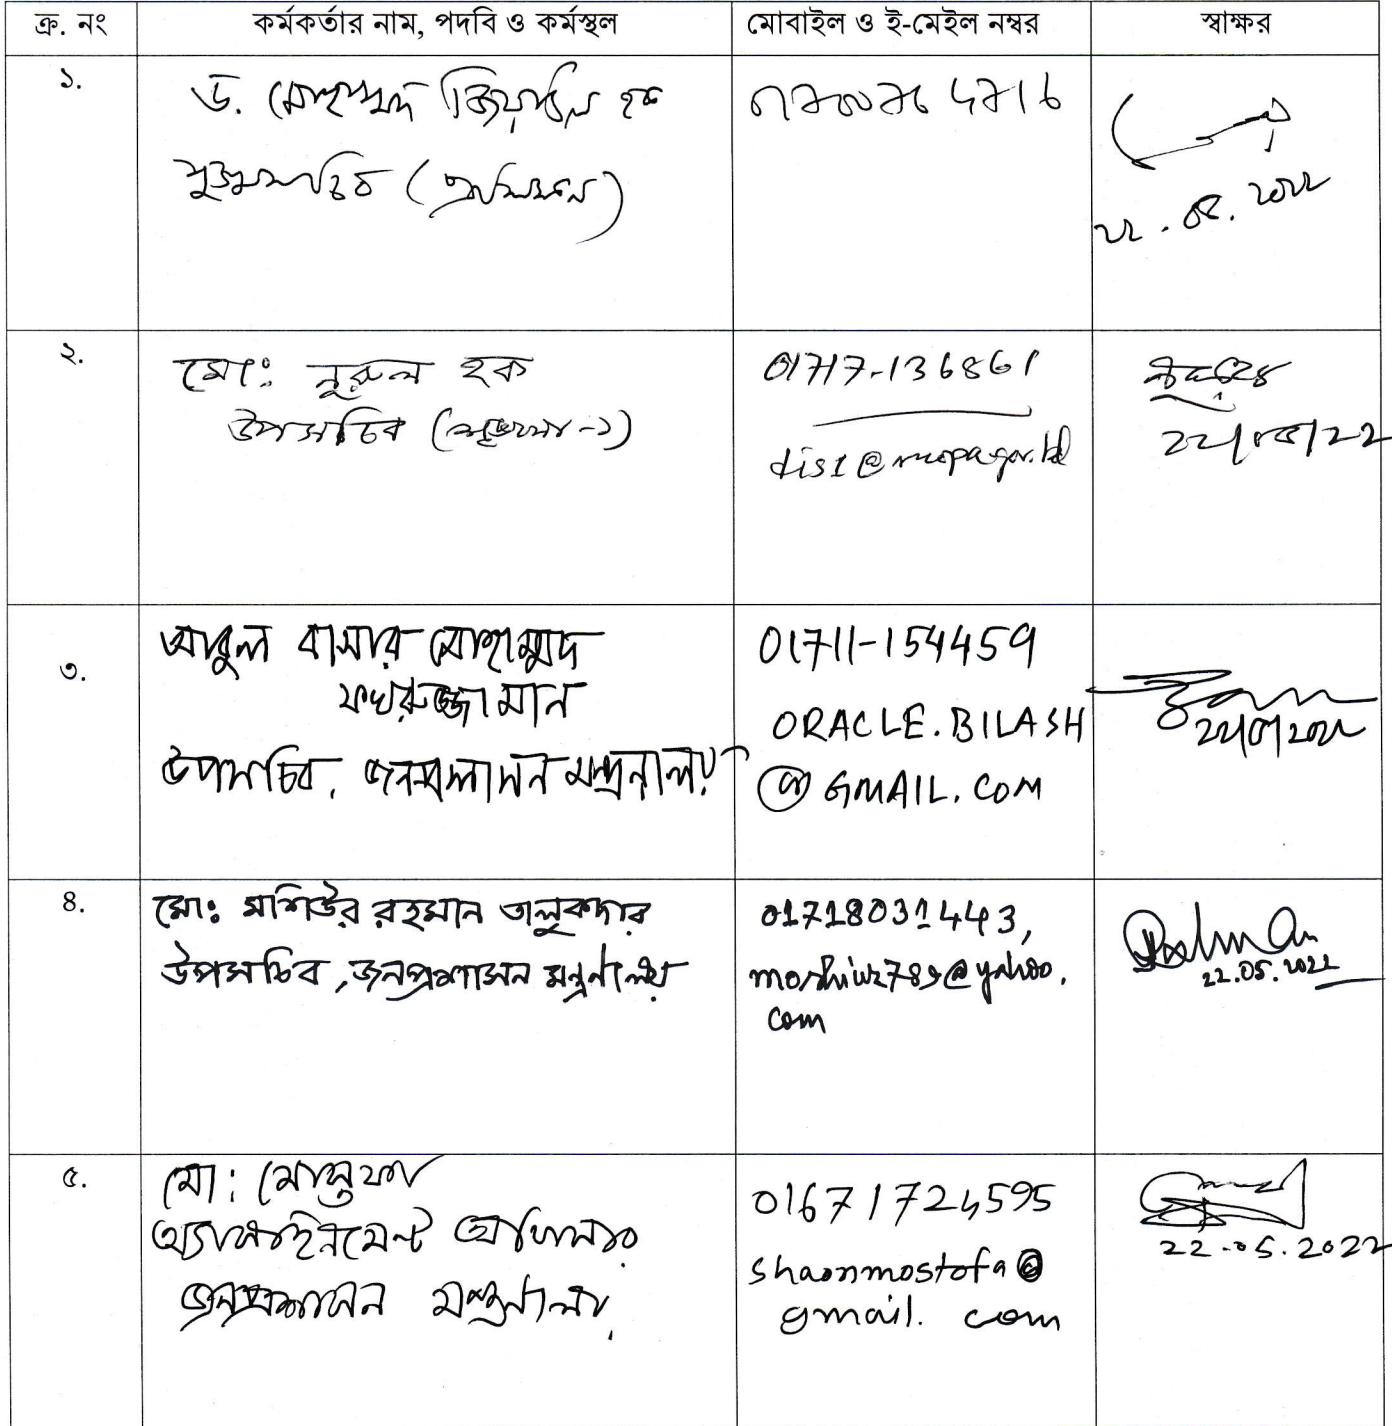 ক্র. নং কর্মকর্তার নাম, পদবি ও কর্মস্থল মোবাইল ও ই-মেইল নম্বর স্বাক্ষর
১.
ড. মোহাম্মদ জিয়াউল হক
যুগ্মসচিব
22.05.2022
২.
মোঃ নূরুল হক
উপসচিব (শৃঙ্খলা-১)
01717-136861
dis1@mopa.gov.bd
22/05/22
৩.
আবুল বাসার মোহাম্মদ
ফখরুজ্জামান
উপসচিব, জনপ্রশাসন মন্ত্রনালয়
01711-154459
ORACLE.BILASH
@GMAIL.COM
৪.
মোঃ মশিউর রহমান তালুকদার
উপসচিব, জনপ্রশাসন মন্ত্রণালয়
01718031443,
moshiur789@yahoo.
com
22.05.2022
৫.
মো: মোস্তফা
অ্যাসাইনমেন্ট অফিসার
জনপ্রশাসন মন্ত্রণালয়
01671724595
shaonmostofa@
gmail. com
22.05.2022